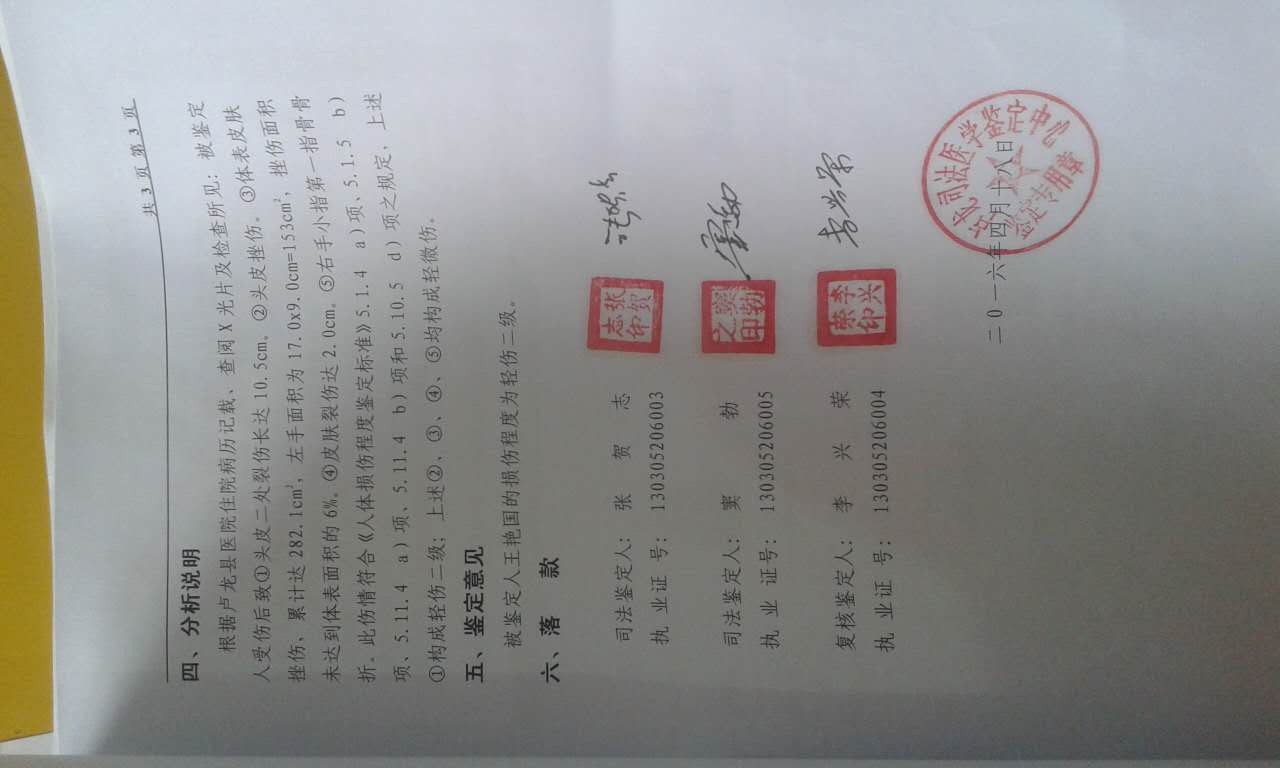 共 3 页 第 3 页
四、分析说明
根据卢龙县医院住院病历记载、查阅 X 光片及检查所见：被鉴定
人受伤后致①头皮二处裂伤长达 10.5cm。②头皮挫伤。③体表皮肤
挫伤、累计达 282.1cm²，左手面积为 17.0x9.0cm=153cm²，挫伤面积
未达到体表面积的 6%。④皮肤裂伤达 2.0cm。⑤右手小指第一指骨骨
折。此伤情符合《人体损伤程度鉴定标准》5.1.4 a）项、5.1.5 b）
项、5.11.4 a）项、5.11.4 b）项和 5.10.5 d）项之规定，上述
①构成轻伤二级；上述②、③、④、⑤均构成轻微伤。
五、鉴定意见
被鉴定人王艳国的损伤程度为轻伤二级。
六、落 款
司法鉴定人： 张 贺 志
张贺志印
执 业 证 号： 130305206003
司法鉴定人： 窦 勃
窦勃之印
执 业 证 号： 130305206005
复核鉴定人： 李 兴 荣
李兴荣印
执 业 证 号： 130305206004
司法医学鉴定中心
鉴定专用章
二０一六年四月十八日